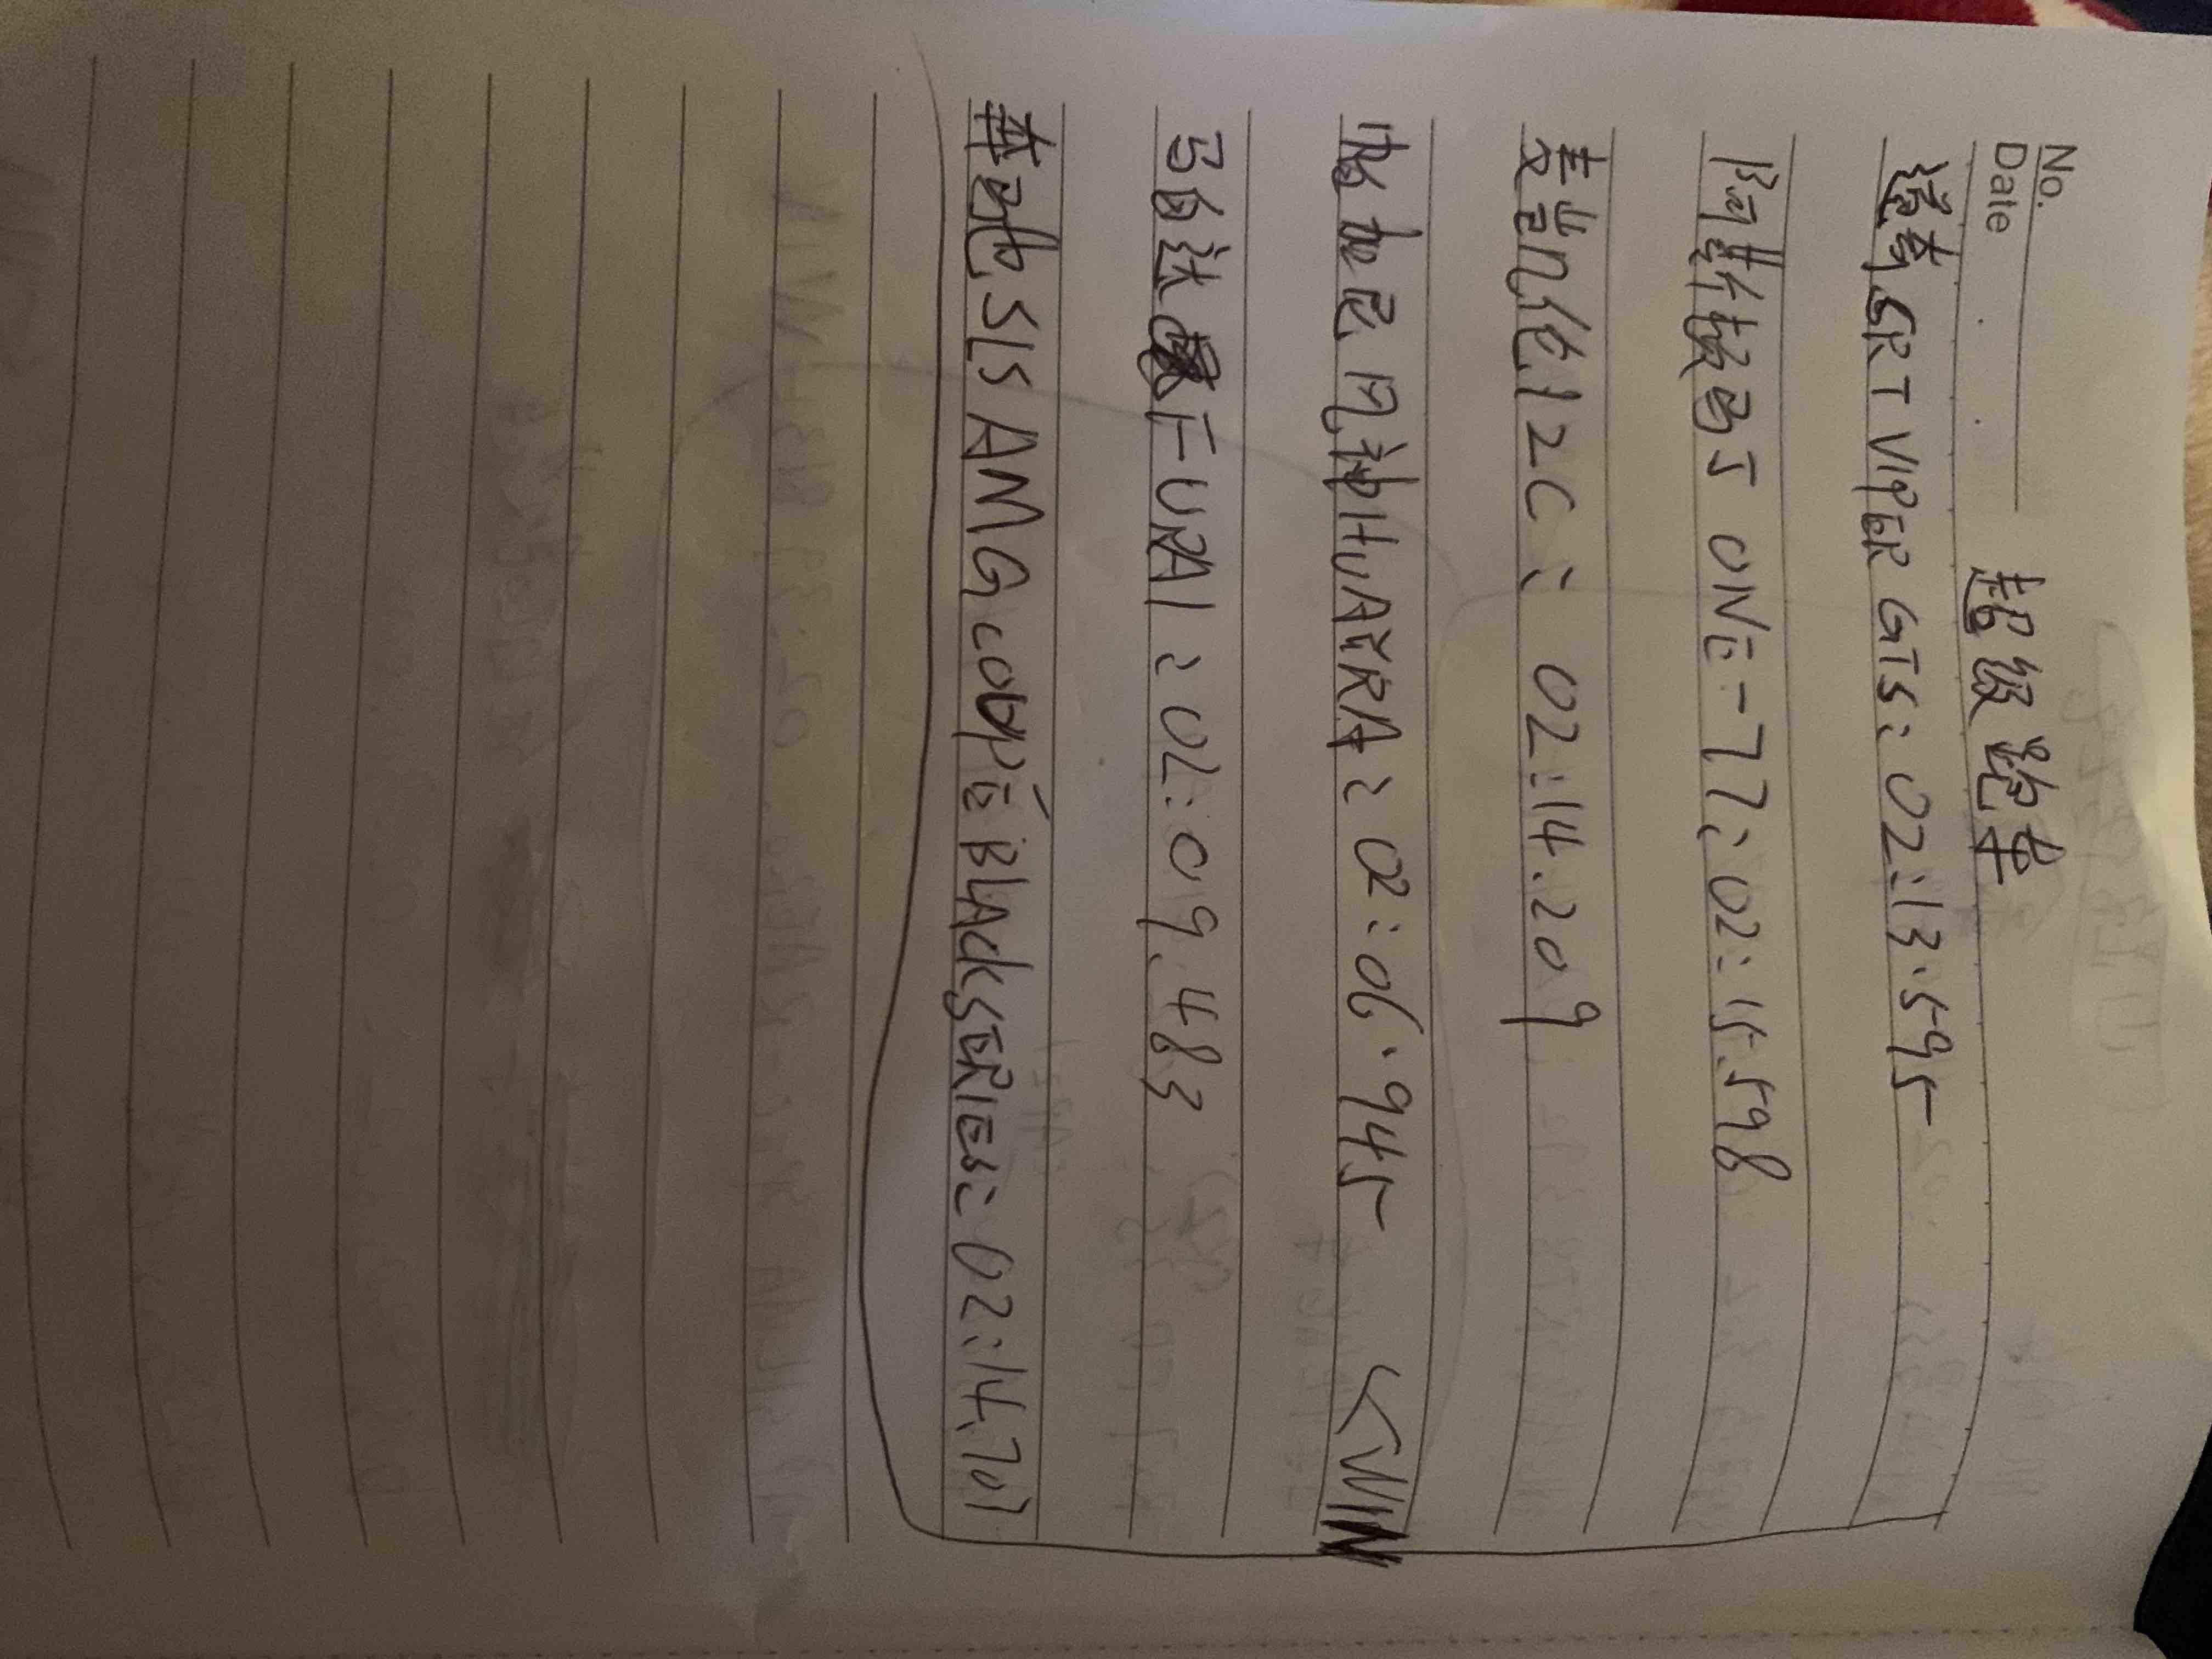 No.
Date
超级跑车
道奇SRT VIPER GTS: 02:13.595
阿斯顿马丁 ONE-77: 02:15.598
麦凯伦12C: 02:14.209
帕加尼风神HUAYRA: 02:06.945 <WIN
马自达 FURAI: 02:09.483
奔驰SLS AMG COUPÉ BLACK SERIES: 02:14.707